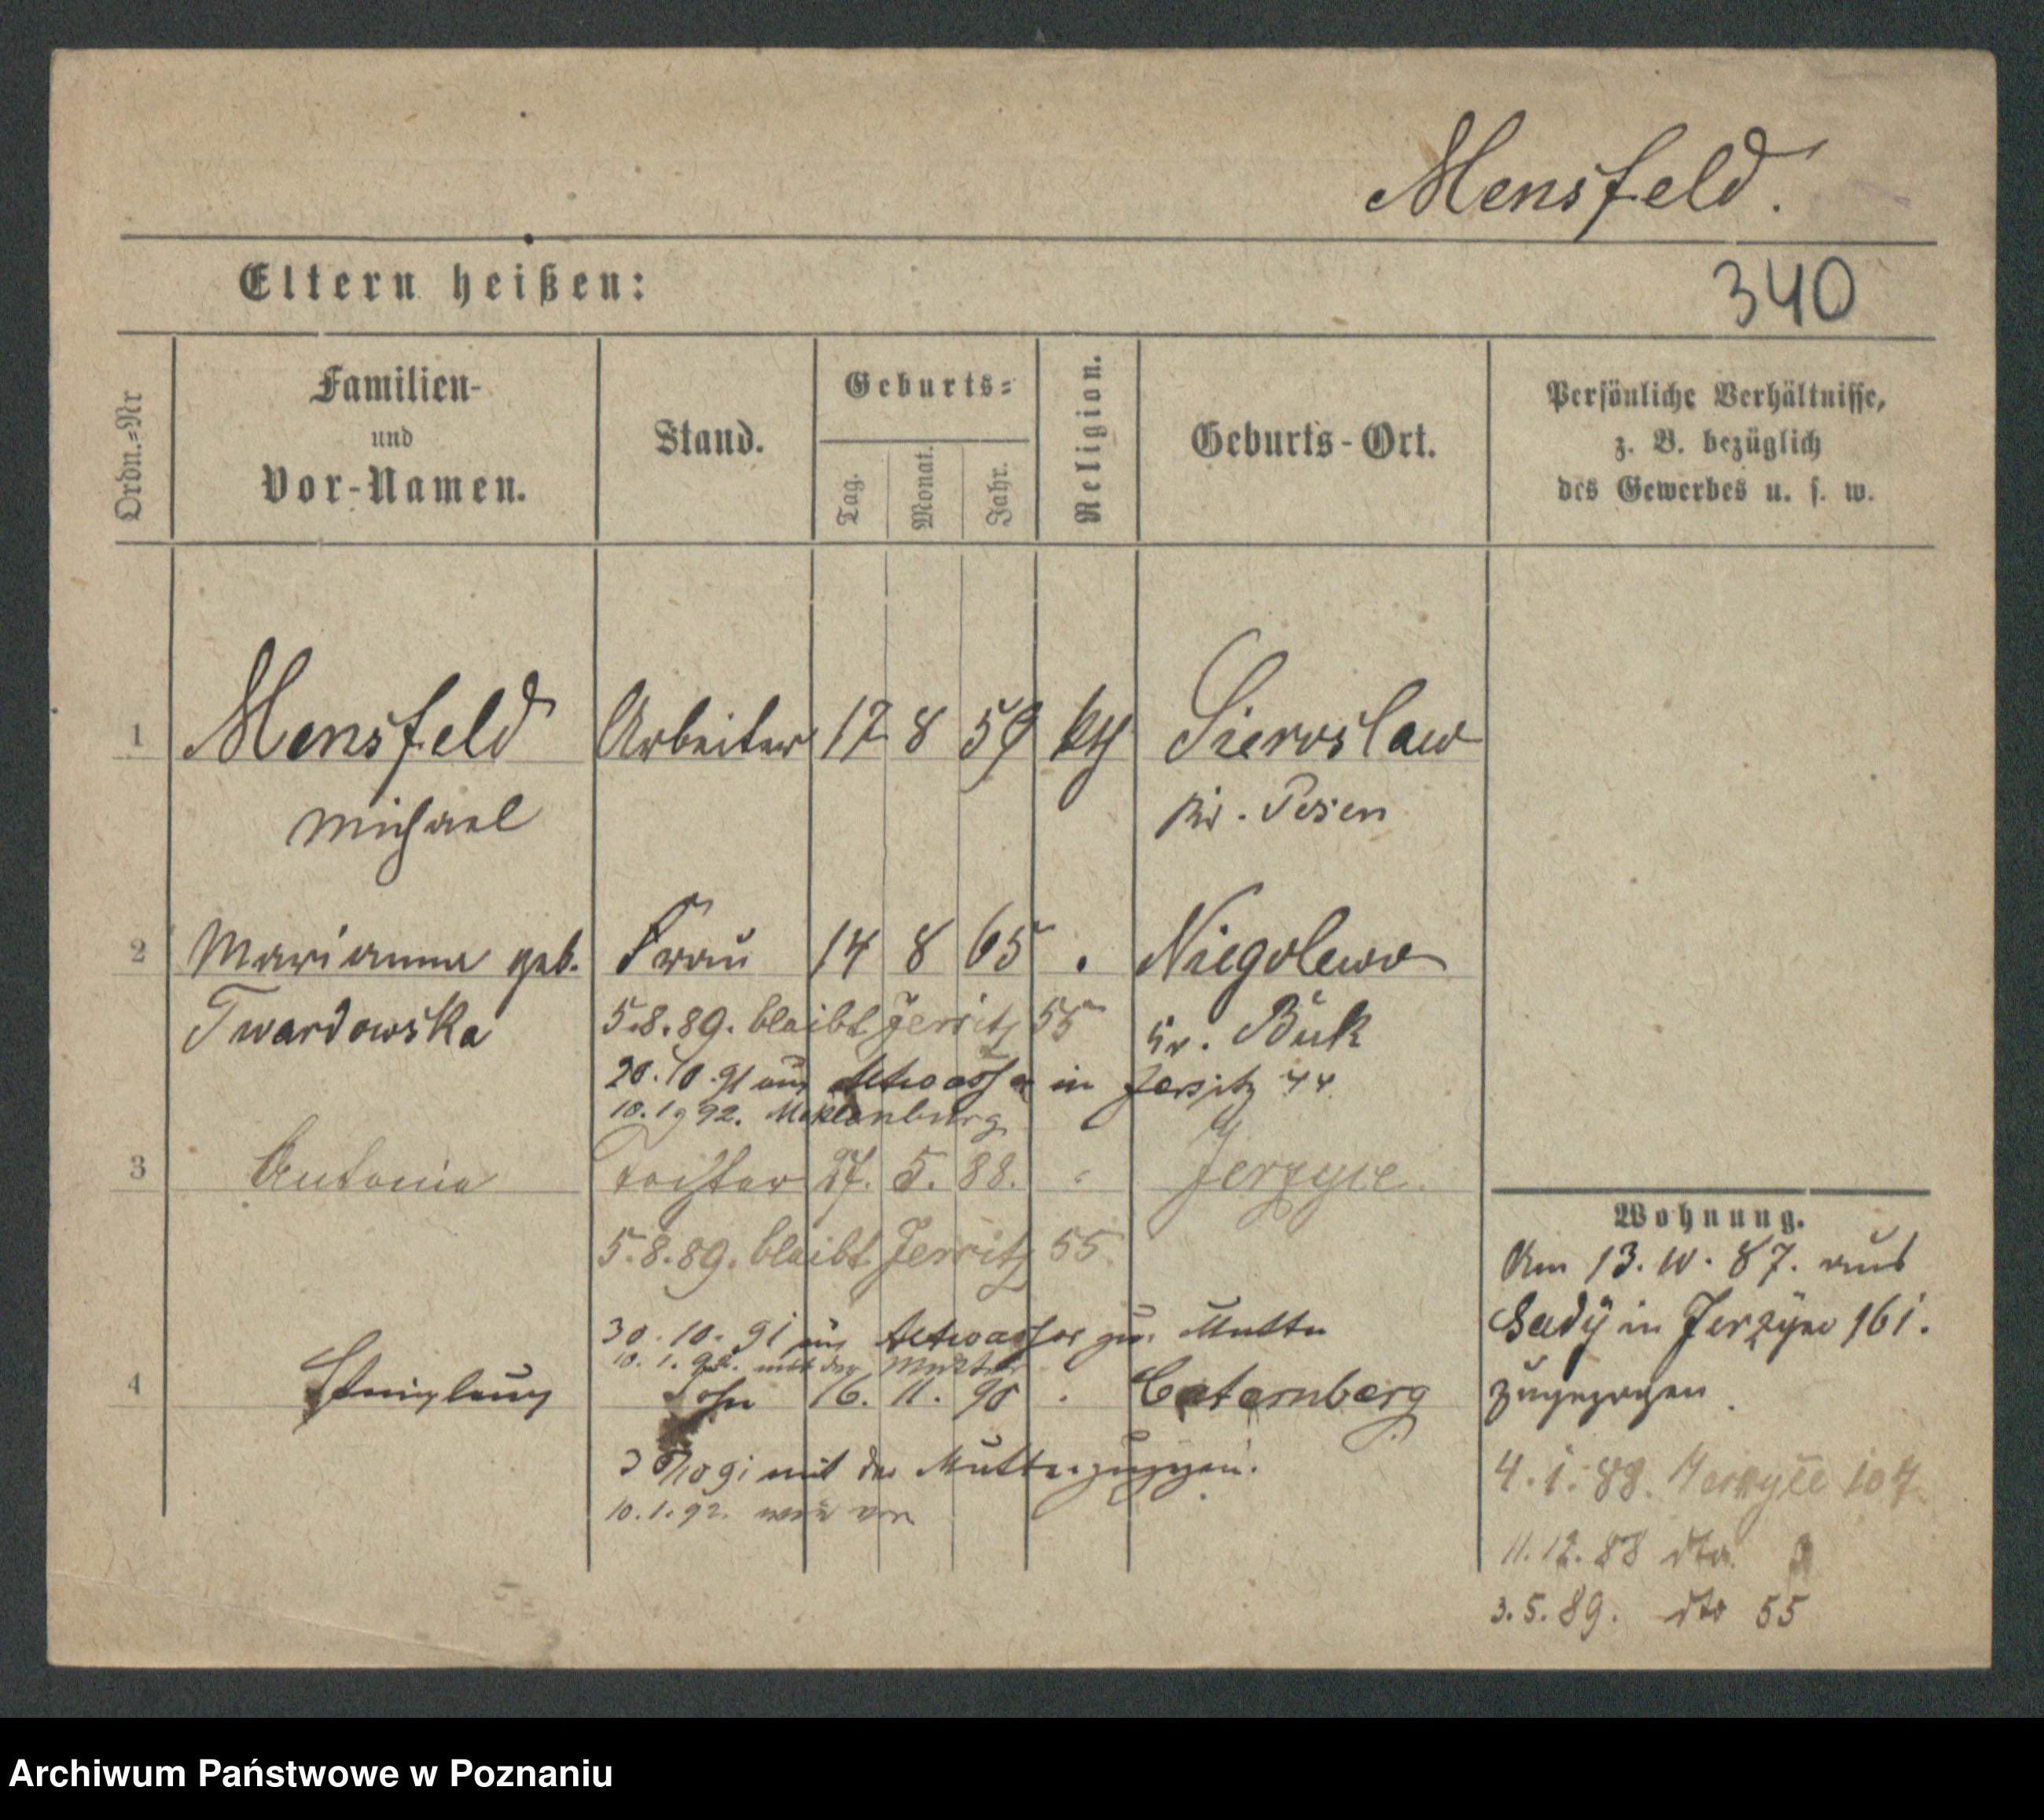 Mensfeld.
Eltern heißen:
340
Ordn.=Nr
Familien-
und
Vor-Namen.
Stand.
Geburts=
Tag.
Monat.
Jahr.
Religion.
Geburts-Ort.
Persönliche Verhältnisse,
z. B. bezüglich
des Gewerbes u. s. w.
1 Mensfeld Arbeiter 12 8 59 kth Sieroslaw
Michael Kr. Posen
2 Marianna geb. Frau 14 8 65 Niegolewo
Twardowska Kr. Buk
5.8.89. bleibt Jersitz 55
20.10.91 aus in Jersitz 44
10.1.92. Meklenburg
3 Antonie Tochter 27. 5. 88. Jerzyce.
5.8.89. bleibt Jersitz 55
30.10.91 aus zur Mutter
10.1.92. mit der Mutter
4 Stanislaus Sohn 16. 11. 90 Caternberg
mit der Mutter zugezogen.
10.1.92. wie vor
Wohnung.
Am 13.10.87. aus
Sady in Jerzyce 161.
zugezogen.
4.1.88. Jerzyce 107
11.12.88 dto.
3.5.89. dto 55
Archiwum Państwowe w Poznaniu